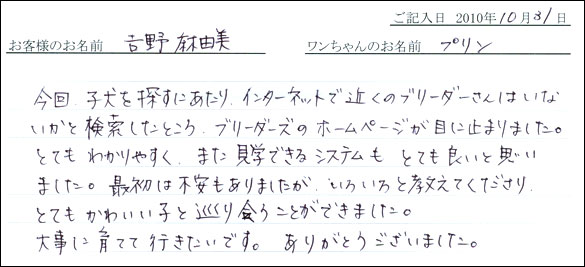 ご記入日 2010年10月31日
お客様のお名前 吉野麻由美 ワンちゃんのお名前 プリン
今回、子犬を探すにあたり、インターネットで近くのブリーダーさんはいな
いかと検索したところ、ブリーダーズのホームページが目に止まりました。
とてもわかりやすく、また見学できるシステムもとても良いと思い
ました。最初は不安もありましたが、いろいろと教えてくださり、
とてもかわいい子と巡り会うことができました。
大事に育てて行きたいです。ありがとうございました。